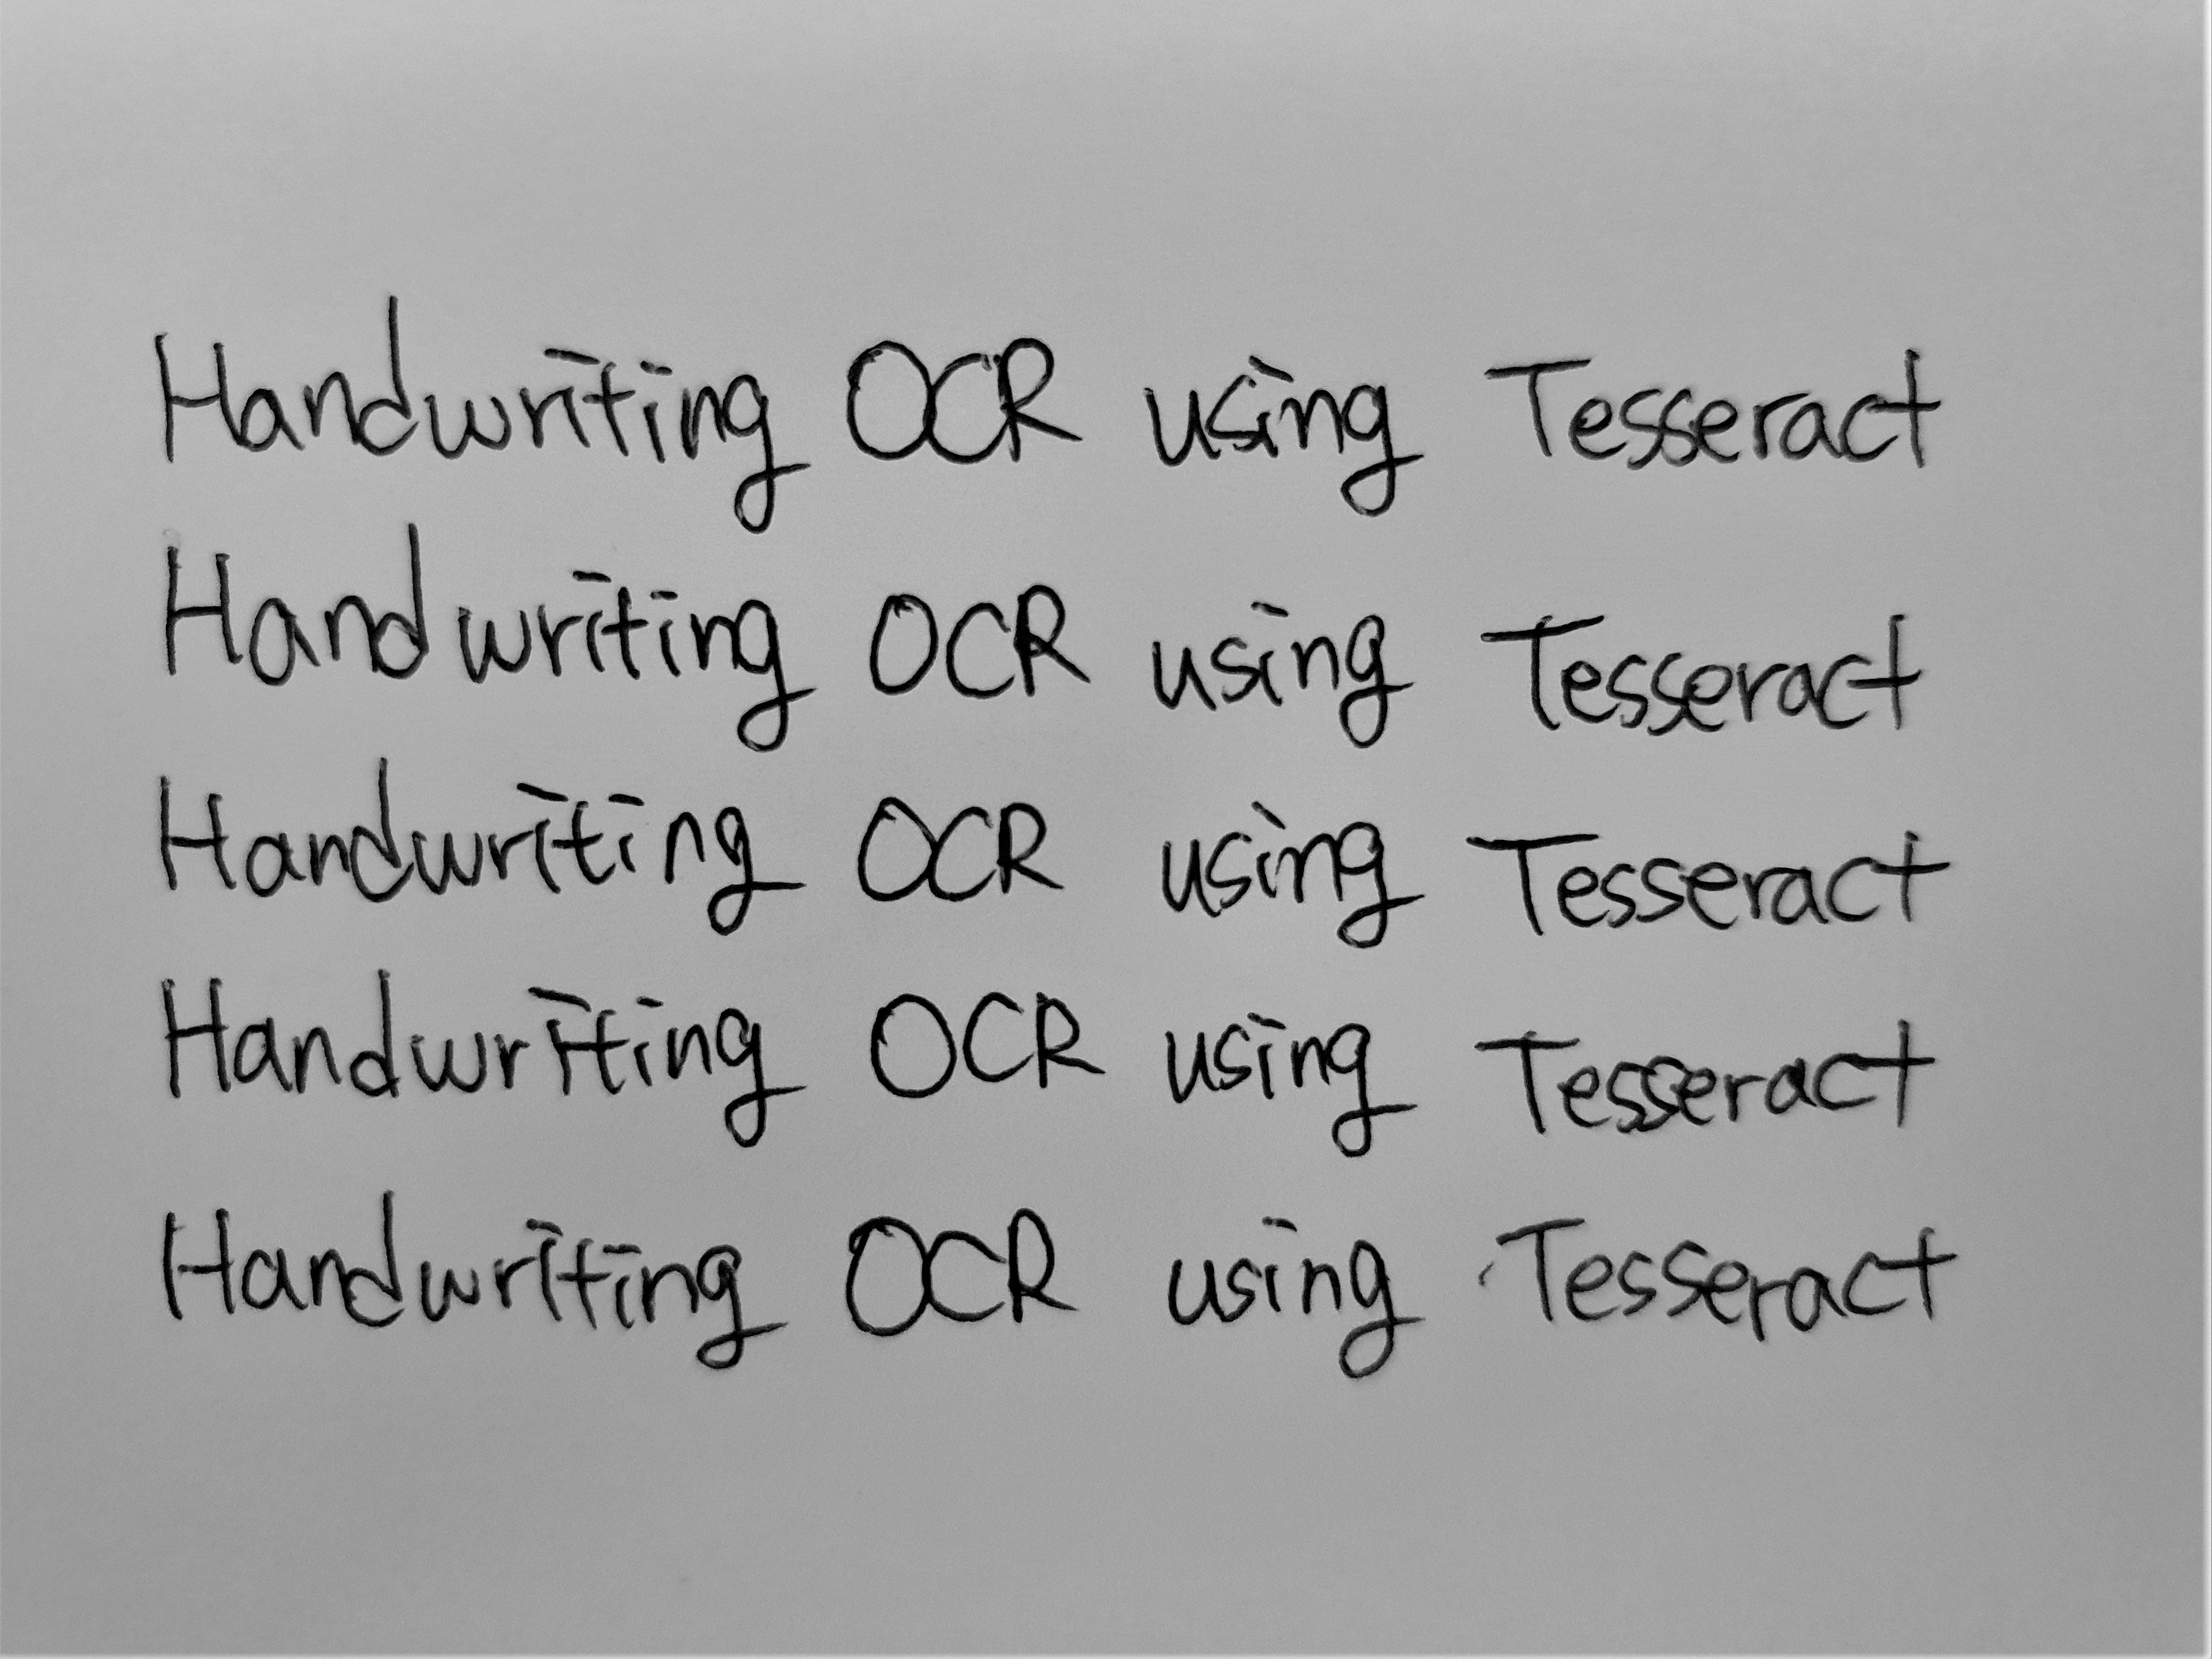 Handwriting OCR using Tesseract
Handwriting OCR using Tesseract
Handwriting OCR using Tesseract
Handwriting OCR using Tesseract
Handwriting OCR using Tesseract